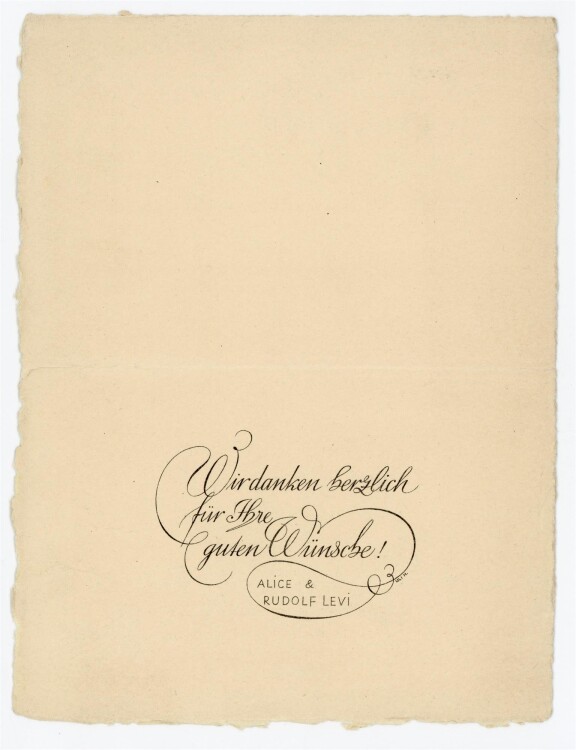 Wir danken herzlich
für Ihre
guten Wünsche!
ALICE &
RUDOLF LEVI